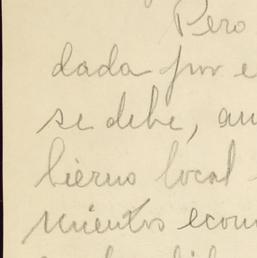 Pero
dada por e
se debe, au
bierno local
mientos econ